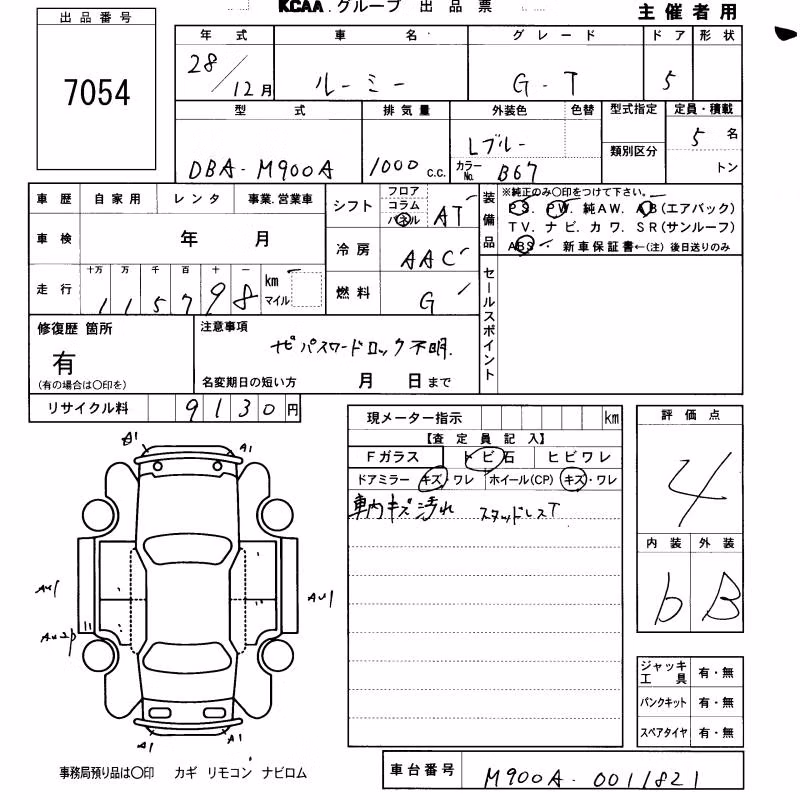 KCAA.グループ 出品票
主催者用
出品番号
7054
年式 車名 グレード ドア 形状
28/12月 ルーミー G.T 5
型式 排気量 外装色 色替 型式指定 定員・積載
DBA-M900A 1000 c.c. Lブルー カラーNo. B67 類別区分 5名 トン
車歴 自家用 レンタ 事業.営業車
車検 年 月
走行 十万 万 千 百 十 一 km マイル
115798
シフト フロア コラム パネル AT
冷房 AAC
燃料 G
装備品
※純正のみ○印をつけて下さい。
PS. PW. 純AW. AB(エアバック)
TV. ナビ. カワ. SR(サンルーフ)
ABS 新車保証書←(注) 後日送りのみ
セールスポイント
修復歴 箇所
有
(有の場合は○印を)
注意事項
ナビパスワードロック不明.
名変期日の短い方 月 日まで
リサイクル料 9130円
現メーター指示 km
【査定員記入】
Fガラス トビ石 ヒビワレ
ドアミラー キズ・ワレ ホイール(CP) キズ・ワレ
車内キズ汚れ スタッドレスT
評価点
4
内装 外装
b B
A1 A1
AU1 AU1
AU2P
A1 A1
ジャッキ工具 有・無
パンクキット 有・無
スペアタイヤ 有・無
事務局預り品は○印 カギ リモコン ナビロム
車台番号 M900A-0011821